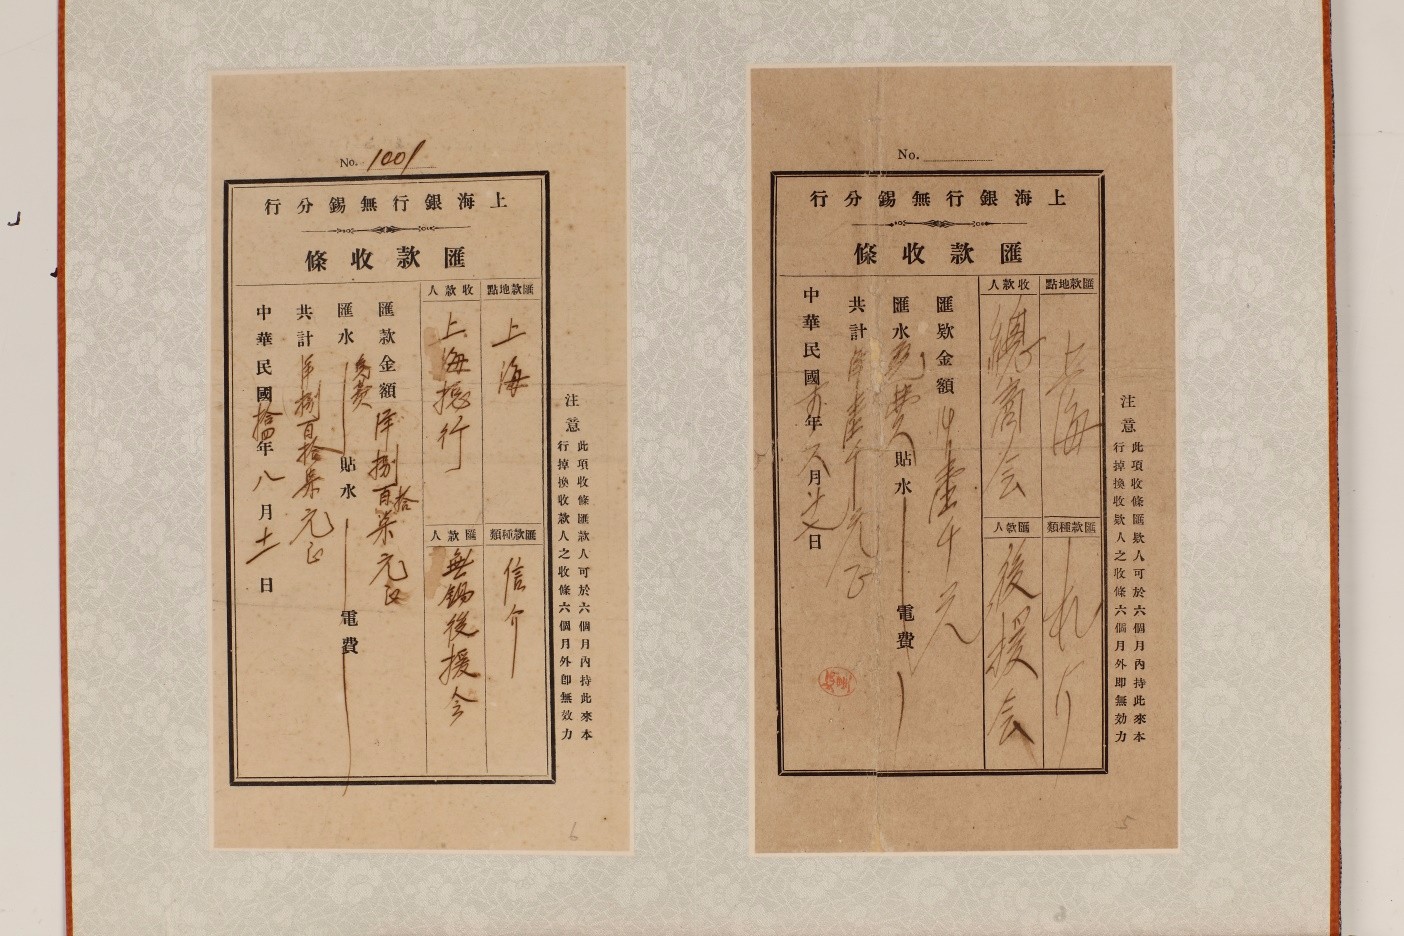 No. 1001
上海銀行無錫分行
匯款收條
匯款地點
上海
匯款種類
信介
收款人
上海總行
匯款人
無錫後援会
匯款金額 洋捌百拾柒元正
匯水 免費 貼水 電費
共計 洋捌百拾柒元正
中華民國拾四年八月十一日
注意 此項收條匯款人可於六個月內持此來本
行掉換收款人之收條六個月外卽無效力
6
No.
上海銀行無錫分行
匯款收條
匯款地點
上海
匯款種類
收款人
總商会
匯款人
後援会
匯款金額 洋壹千元
匯水 免費 貼水 電費
共計 洋壹千元正
中華民國 年六月 日
注意 此項收條匯款人可於六個月內持此來本
行掉換收款人之收條六個月外即無効力
5